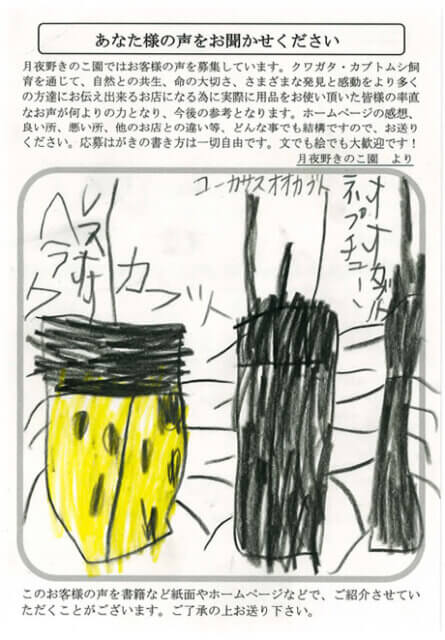 あなた様の声をお聞かせください
月夜野きのこ園ではお客様の声を募集しています。クワガタ・カブトムシ飼
育を通じて、自然との共生、命の大切さ、さまざまな発見と感動をより多く
の方達にお伝え出来るお店になる為に実際に用品をお使い頂いた皆様の率直
なお声が何よりの力となり、今後の参考となります。ホームページの感想、
良い所、悪い所、他のお店との違い等、どんな事でも結構ですので、お送り
ください。応募はがきの書き方は一切自由です。文でも絵でも大歓迎です！
月夜野きのこ園　より
コーカサスオオカブト
ネプチューン
オオカブト
ヘラクレス
カブト
このお客様の声を書籍など紙面やホームページなどで、ご紹介させてい
ただくことがございます。ご了承の上お送り下さい。